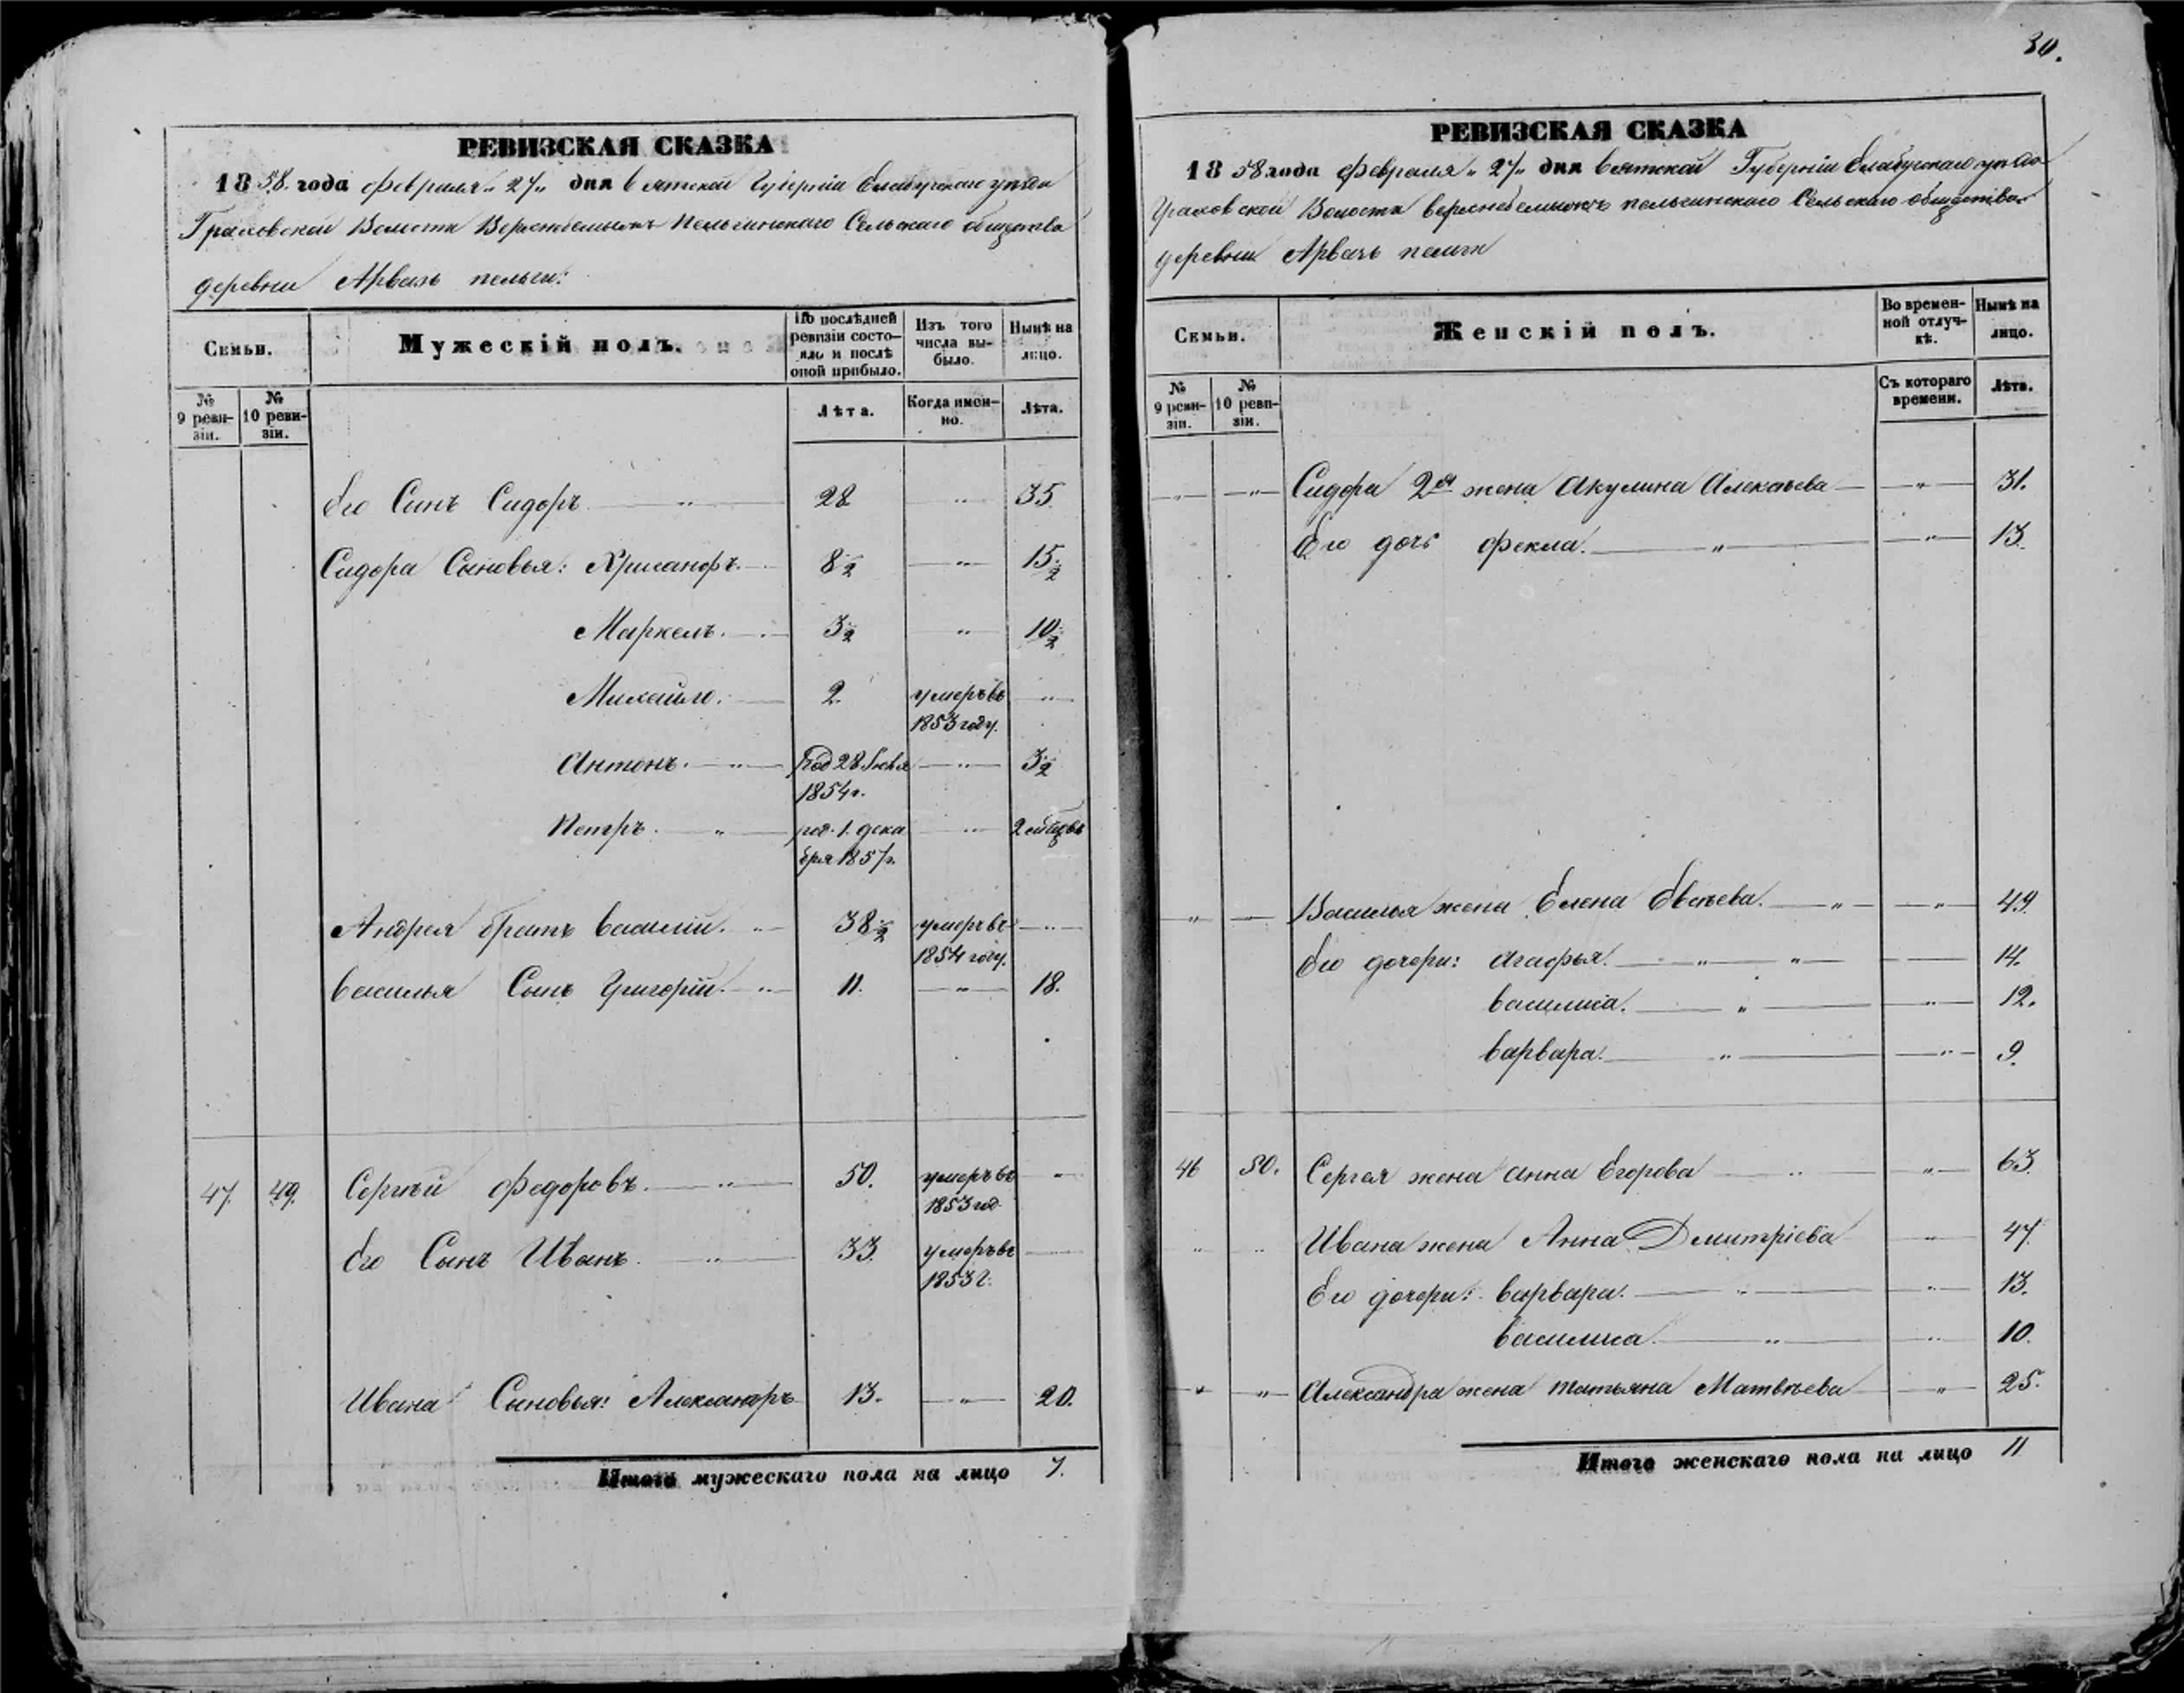 30.
РЕВИЗСКАЯ СКАЗКА
1858. года Февраля „27„ дня Вятской Губерніи Елабужскаго уѣзда
Граховской Волости Пельгинскаго Сельскаго общества
деревни Арвазь пельги:
Семьи.
Мужескій полъ.
По послѣдней ревизіи состояло и послѣ оной прибыло.
Изъ того числа выбыло.
Нынѣ на лицо.
№ 9 ревизіи.
№ 10 ревизіи.
Лѣта.
Когда именно.
Лѣта.
Его Сынъ Сидоръ „ 28 „ 35.
Сидора Сыновья: Хрисанфъ. 8½ „ 15½
Маркелъ. 3½ „ 10½
Михайло. 2. умеръ въ „
1853 году.
Антонъ. „ Род 28 „ 3½
1854 г.
Петръ. „ род. 1. дека „ 2 мѣсяцъ
бря 1857 г.
Андрея братъ Василій. „ 38½ умеръ въ „
1854 году.
Василья Сынъ Григорій. „ 11. „ 18.
47. 49. Сергѣй Федоровъ. „ 50. умеръ въ „
1853 год.
Его Сынъ Иванъ. „ 33. умеръ въ
1853 г.
Ивана Сыновья: Александръ 13. „ 20.
Итого мужескаго пола на лицо 7.
РЕВИЗСКАЯ СКАЗКА
1858 года Февраля „27„ дня Вятской Губерніи Елабужскаго уѣзда
Граховской Волости пельгинскаго Сельскаго общества
деревни Арвазь пельги
Семьи.
Женскій полъ.
Во временной отлучкѣ.
Нынѣ на лицо.
№ 9 ревизіи.
№ 10 ревизіи.
Съ котораго времени.
Лѣта.
„ „ Сидора 2ая жена Акулина Алексѣева „ 31.
Его дочь Фекла. „ „ 13.
„ Василья жена Елена Евсѣева. „ „ 49.
Его дочери: Агафья. „ „ 14.
Василиса. „ „ 12.
Варвара. „ „ 9.
46 50. Сергея жена Анна Егорова „ „ 63.
„ „ Ивана жена Анна Дмитріева „ 47.
Его дочери: Варвара. „ „ 13.
Василиса. „ „ 10.
„ „ Александра жена Татьяна Матвѣева „ 25.
Итого женскаго пола на лицо 11